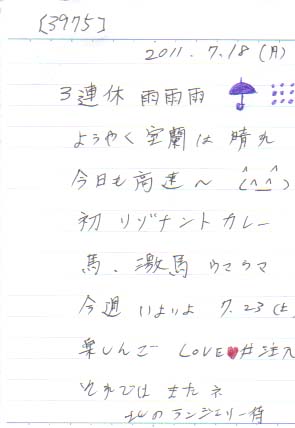 [3975]
2011.7.18(月)
3連休 雨雨雨
ようやく室蘭は晴れ
今日も高速〜 (^^)
初 リゾナントカレー
馬、激馬 ウマウマ
今週 いよいよ 7.23(土
楽しんご LOVE♥注入
それでは またネ
北のランジェリー侍